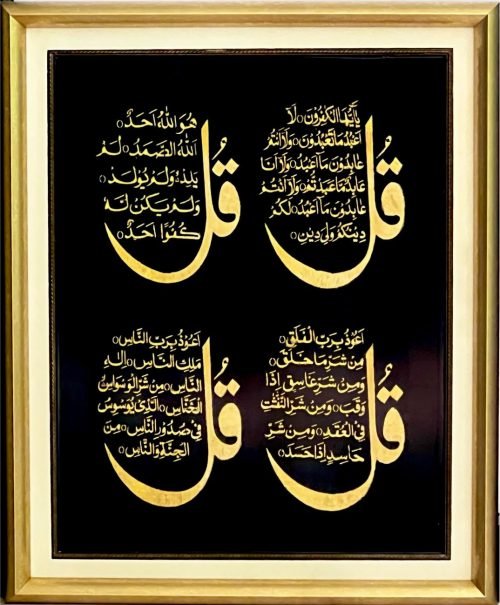 قُلْ
يٰٓاَيُّهَا الْكٰفِرُوْنَ ○ لَآ
اَعْبُدُ مَا تَعْبُدُوْنَ ○ وَلَآ اَنْتُمْ
عٰبِدُوْنَ مَآ اَعْبُدُ ○ وَلَآ اَنَا
عَابِدٌ مَّا عَبَدْتُّمْ ○ وَلَآ اَنْتُمْ
عٰبِدُوْنَ مَآ اَعْبُدُ ○ لَكُمْ
دِيْنُكُمْ وَلِيَ دِيْنِ ○
قُلْ
هُوَ اللّٰهُ اَحَدٌ ○
اَللّٰهُ الصَّمَدُ ○ لَمْ
يَلِدْ ○ وَلَمْ يُوْلَدْ ○
وَلَمْ يَكُنْ لَّهٗ
كُفُوًا اَحَدٌ ○
قُلْ
اَعُوْذُ بِرَبِّ الْفَلَقِ ○
مِنْ شَرِّ مَا خَلَقَ ○
وَمِنْ شَرِّ غَاسِقٍ اِذَا
وَقَبَ ○ وَمِنْ شَرِّ النَّفّٰثٰتِ
فِى الْعُقَدِ ○ وَمِنْ شَرِّ
حَاسِدٍ اِذَا حَسَدَ ○
قُلْ
اَعُوْذُ بِرَبِّ النَّاسِ ○
مَلِكِ النَّاسِ ○ اِلٰهِ
النَّاسِ ○ مِنْ شَرِّ الْوَسْوَاسِ
الْخَنَّاسِ ○ الَّذِيْ يُوَسْوِسُ
فِيْ صُدُوْرِ النَّاسِ ○ مِنَ
الْجِنَّةِ وَالنَّاسِ ○